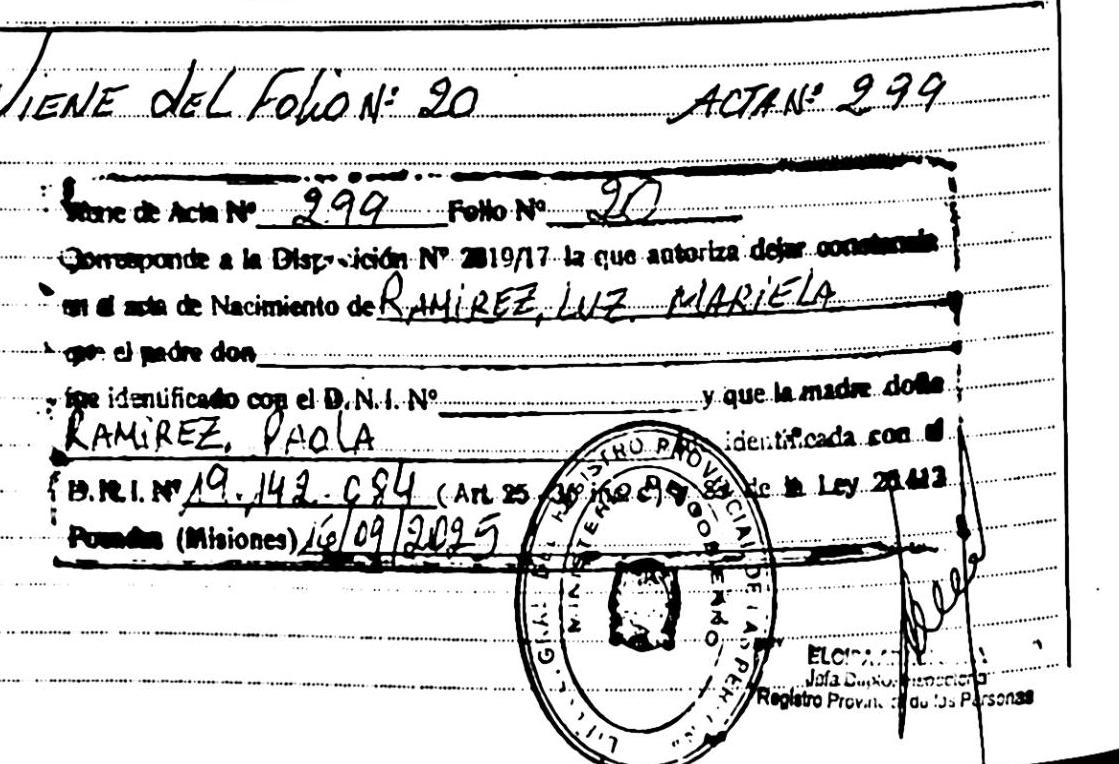 VIENE DEL FOLIO Nº 20 ACTA Nº 299
Viene de Acta Nº 299 Folio Nº 20
Corresponde a la Disposición Nº 2819/17 la que autoriza dejar constancia
en el acta de Nacimiento de RAMIREZ, LUZ MARIELA
que el padre don
fue identificado con el D.N.I. Nº y que la madre doña
RAMIREZ, PAOLA identificada con el
D.N.I. Nº 19.142.684 (Art. 25 36 inc c) y 83 de la Ley 26413
Posadas (Misiones) 16/09/2025
GRAL DEL REGISTRO PROVINCIAL DE LAS PER
MINISTERIO DE GOBIERNO
Jefa Dpto.
Registro Provincial de las Personas